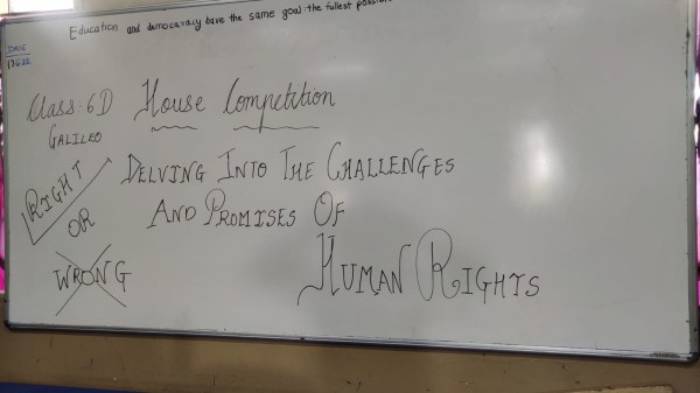 Education and democracy have the same goal: the fullest
DATE
Class: 6D House Competition
GALILEO
RIGHT
OR
WRONG
DELVING INTO THE CHALLENGES
AND PROMISES OF
HUMAN RIGHTS